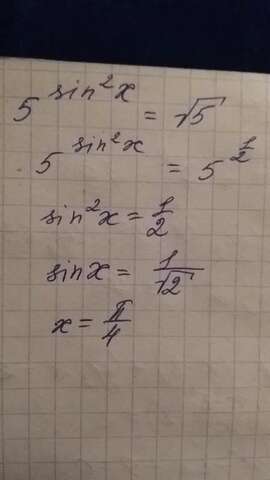 5^{sin²x} = √5
5^{sin²x} = 5^{1/2}
sin²x = 1/2
sinx = 1/√2
x = π/4